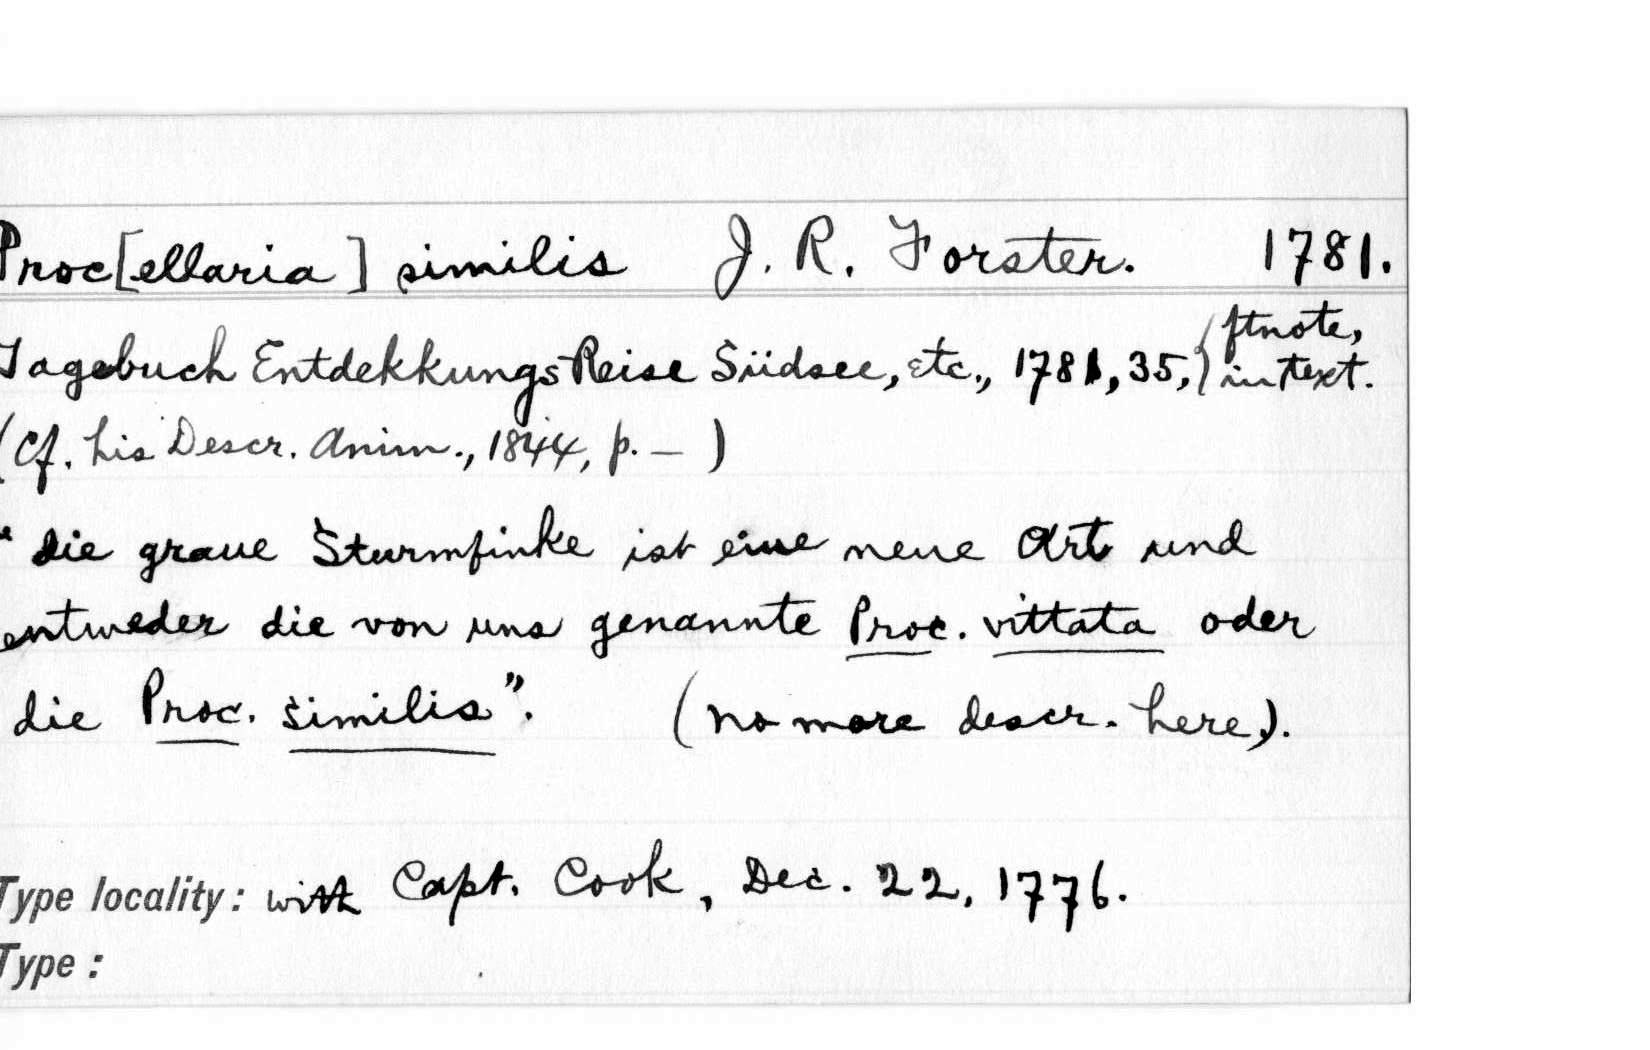 Proc[ellaria] similis J. R. Forster. 1781.
Tagebuch Entdekkungs Reise Südsee, etc., 1781, 35, (ftnote, in text.
(Cf. his Descr. Anim., 1844, p. – )
" die graue Sturmfinke ist eine neue Art und
entweder die von uns genannte Proc. vittata oder
die Proc. similis". (no more descr. here).
Type locality: with Capt. Cook, Dec. 22, 1776.
Type: